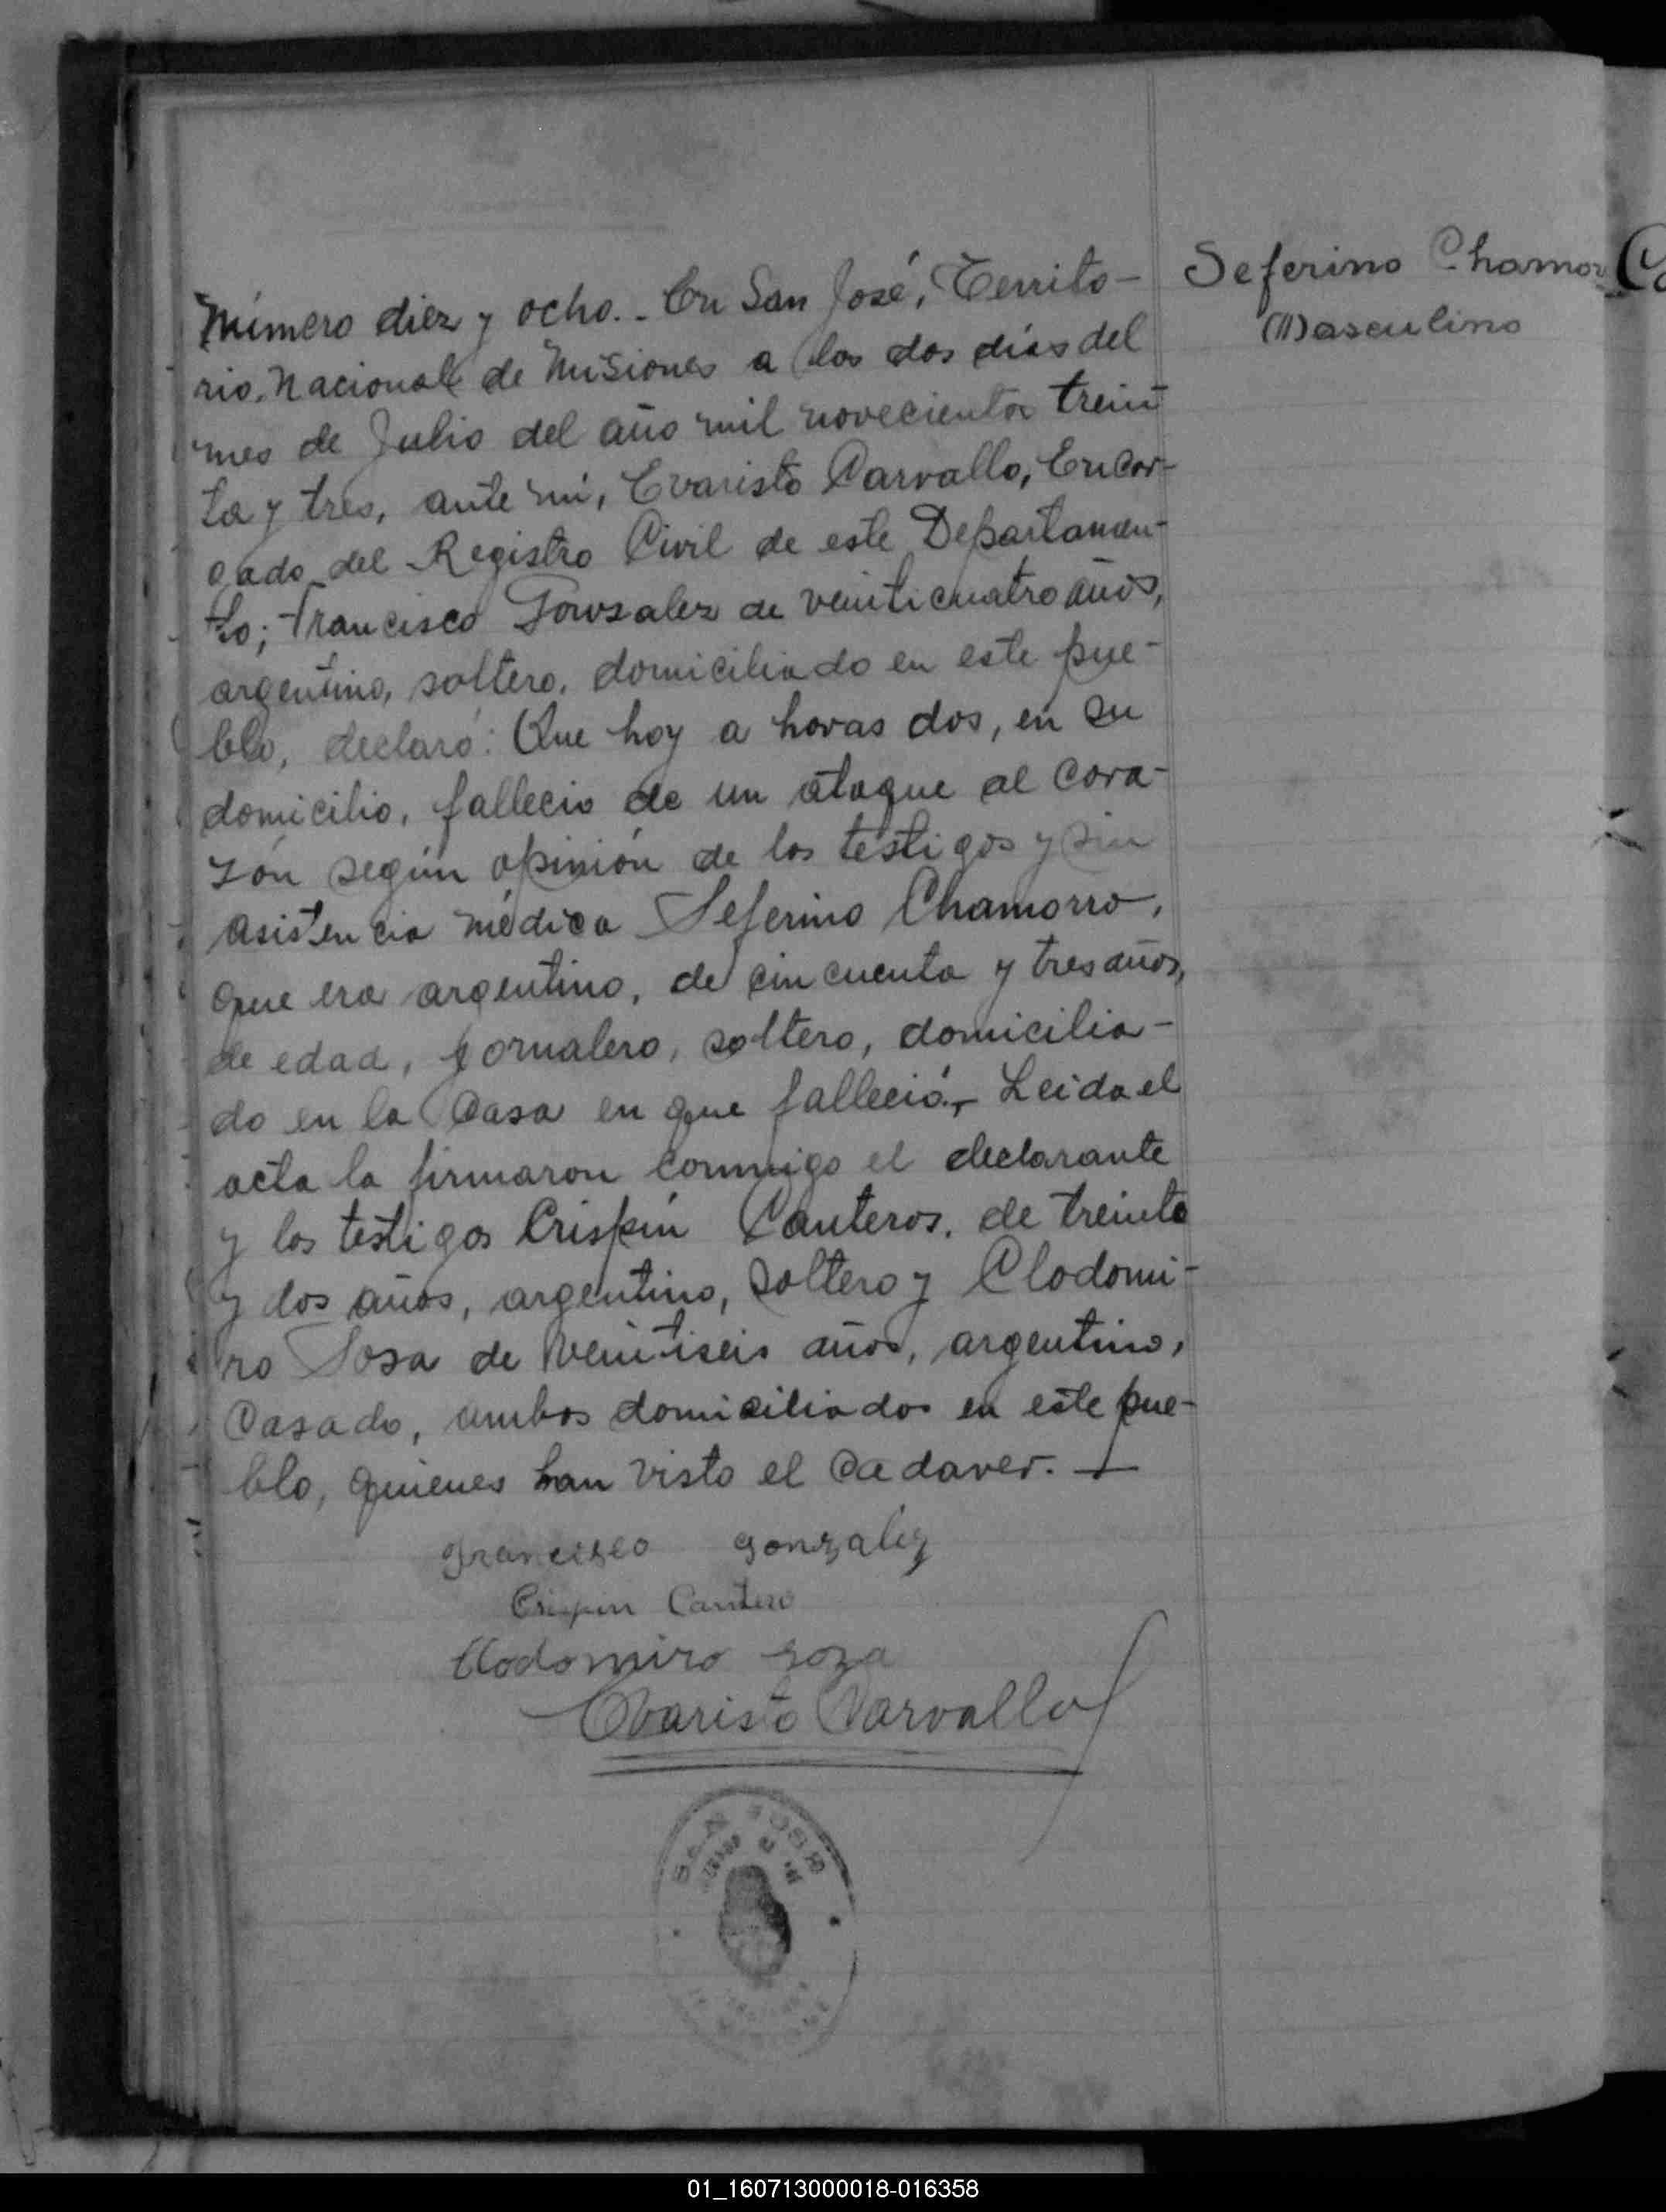 Número diez y ocho.- En San José, Territo-
rio Nacional de Misiones a los dos días del
mes de Julio del año mil novecientos trein
ta y tres, ante mí, Evaristo Carvallo, Encar-
gado del Registro Civil de este Departamen-
to; Francisco Gonzalez de veinticuatro años,
argentino, soltero, domiciliado en este pue-
blo, declaró: Que hoy a horas dos, en su
domicilio, fallecio de un ataque al cora-
zón según opinión de los testigos y sin
asistencia médica Seferino Chamorro,
que era argentino, de cincuenta y tres años,
de edad, jornalero, soltero, domicilia-
do en la casa en que falleció.- Leida el
acta la firmaron conmigo el declarante
y los testigos Crispín Canteros, de treinta
y dos años, argentino, soltero y Clodomi-
ro Sosa de veintiseis años, argentino,
casado, ambos domiciliados en este pue-
blo, quienes han visto el cadaver.-
Francisco Gonzalez
Crispin Cantero
Clodomiro Soza
Evaristo Carvallo
Seferino Chamor
Masculino
SAN JOSE
01_160713000018-016358